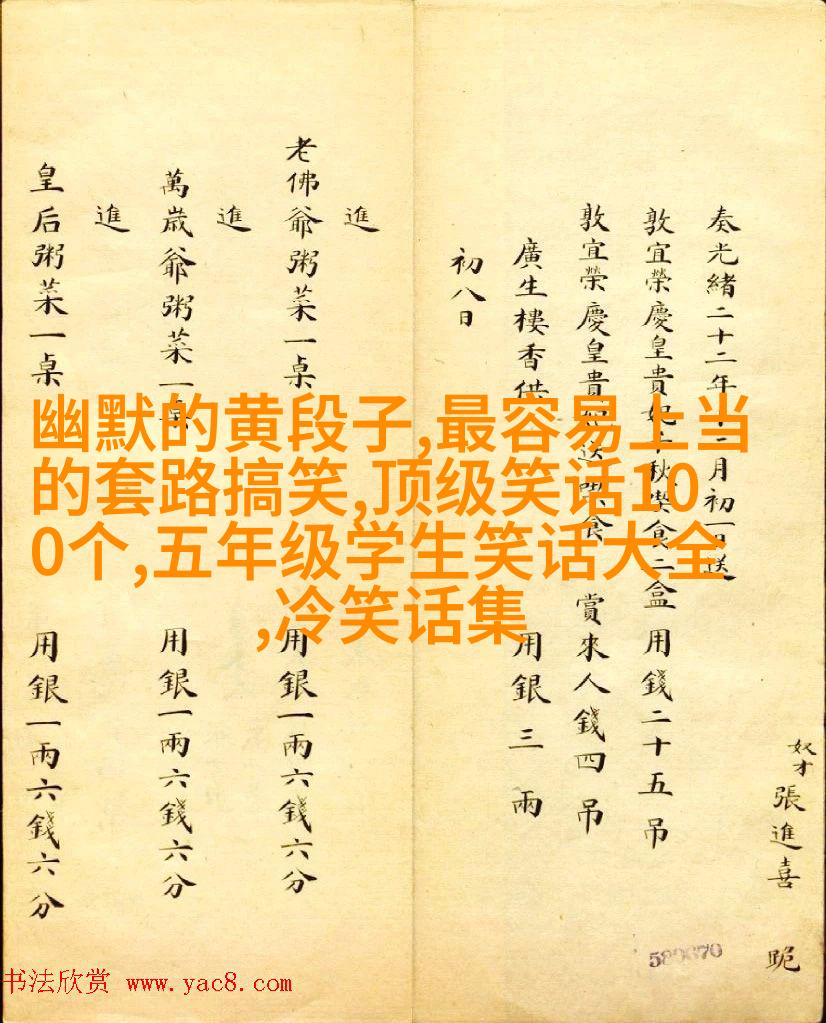 奴才張進喜 跪
奏光緒二十二年十二月初一日送
敦宜榮慶皇貴妃千秋喫食二盒 用錢二十五吊
敦宜榮慶皇貴妃送喫食 賞來人錢四吊
廣生樓香供 用銀三兩
初八日
進
老佛爺粥菜一桌 用銀一兩六錢六分
進
萬歲爺粥菜一桌 用銀一兩六錢六分
進
皇后粥菜一桌 用銀一兩六錢六分
幽默的黄段子,最容易上当
的套路搞笑,顶级笑话10
0个,五年级学生笑话大全
,冷笑话集
589670
书法欣赏 www.yac8.com